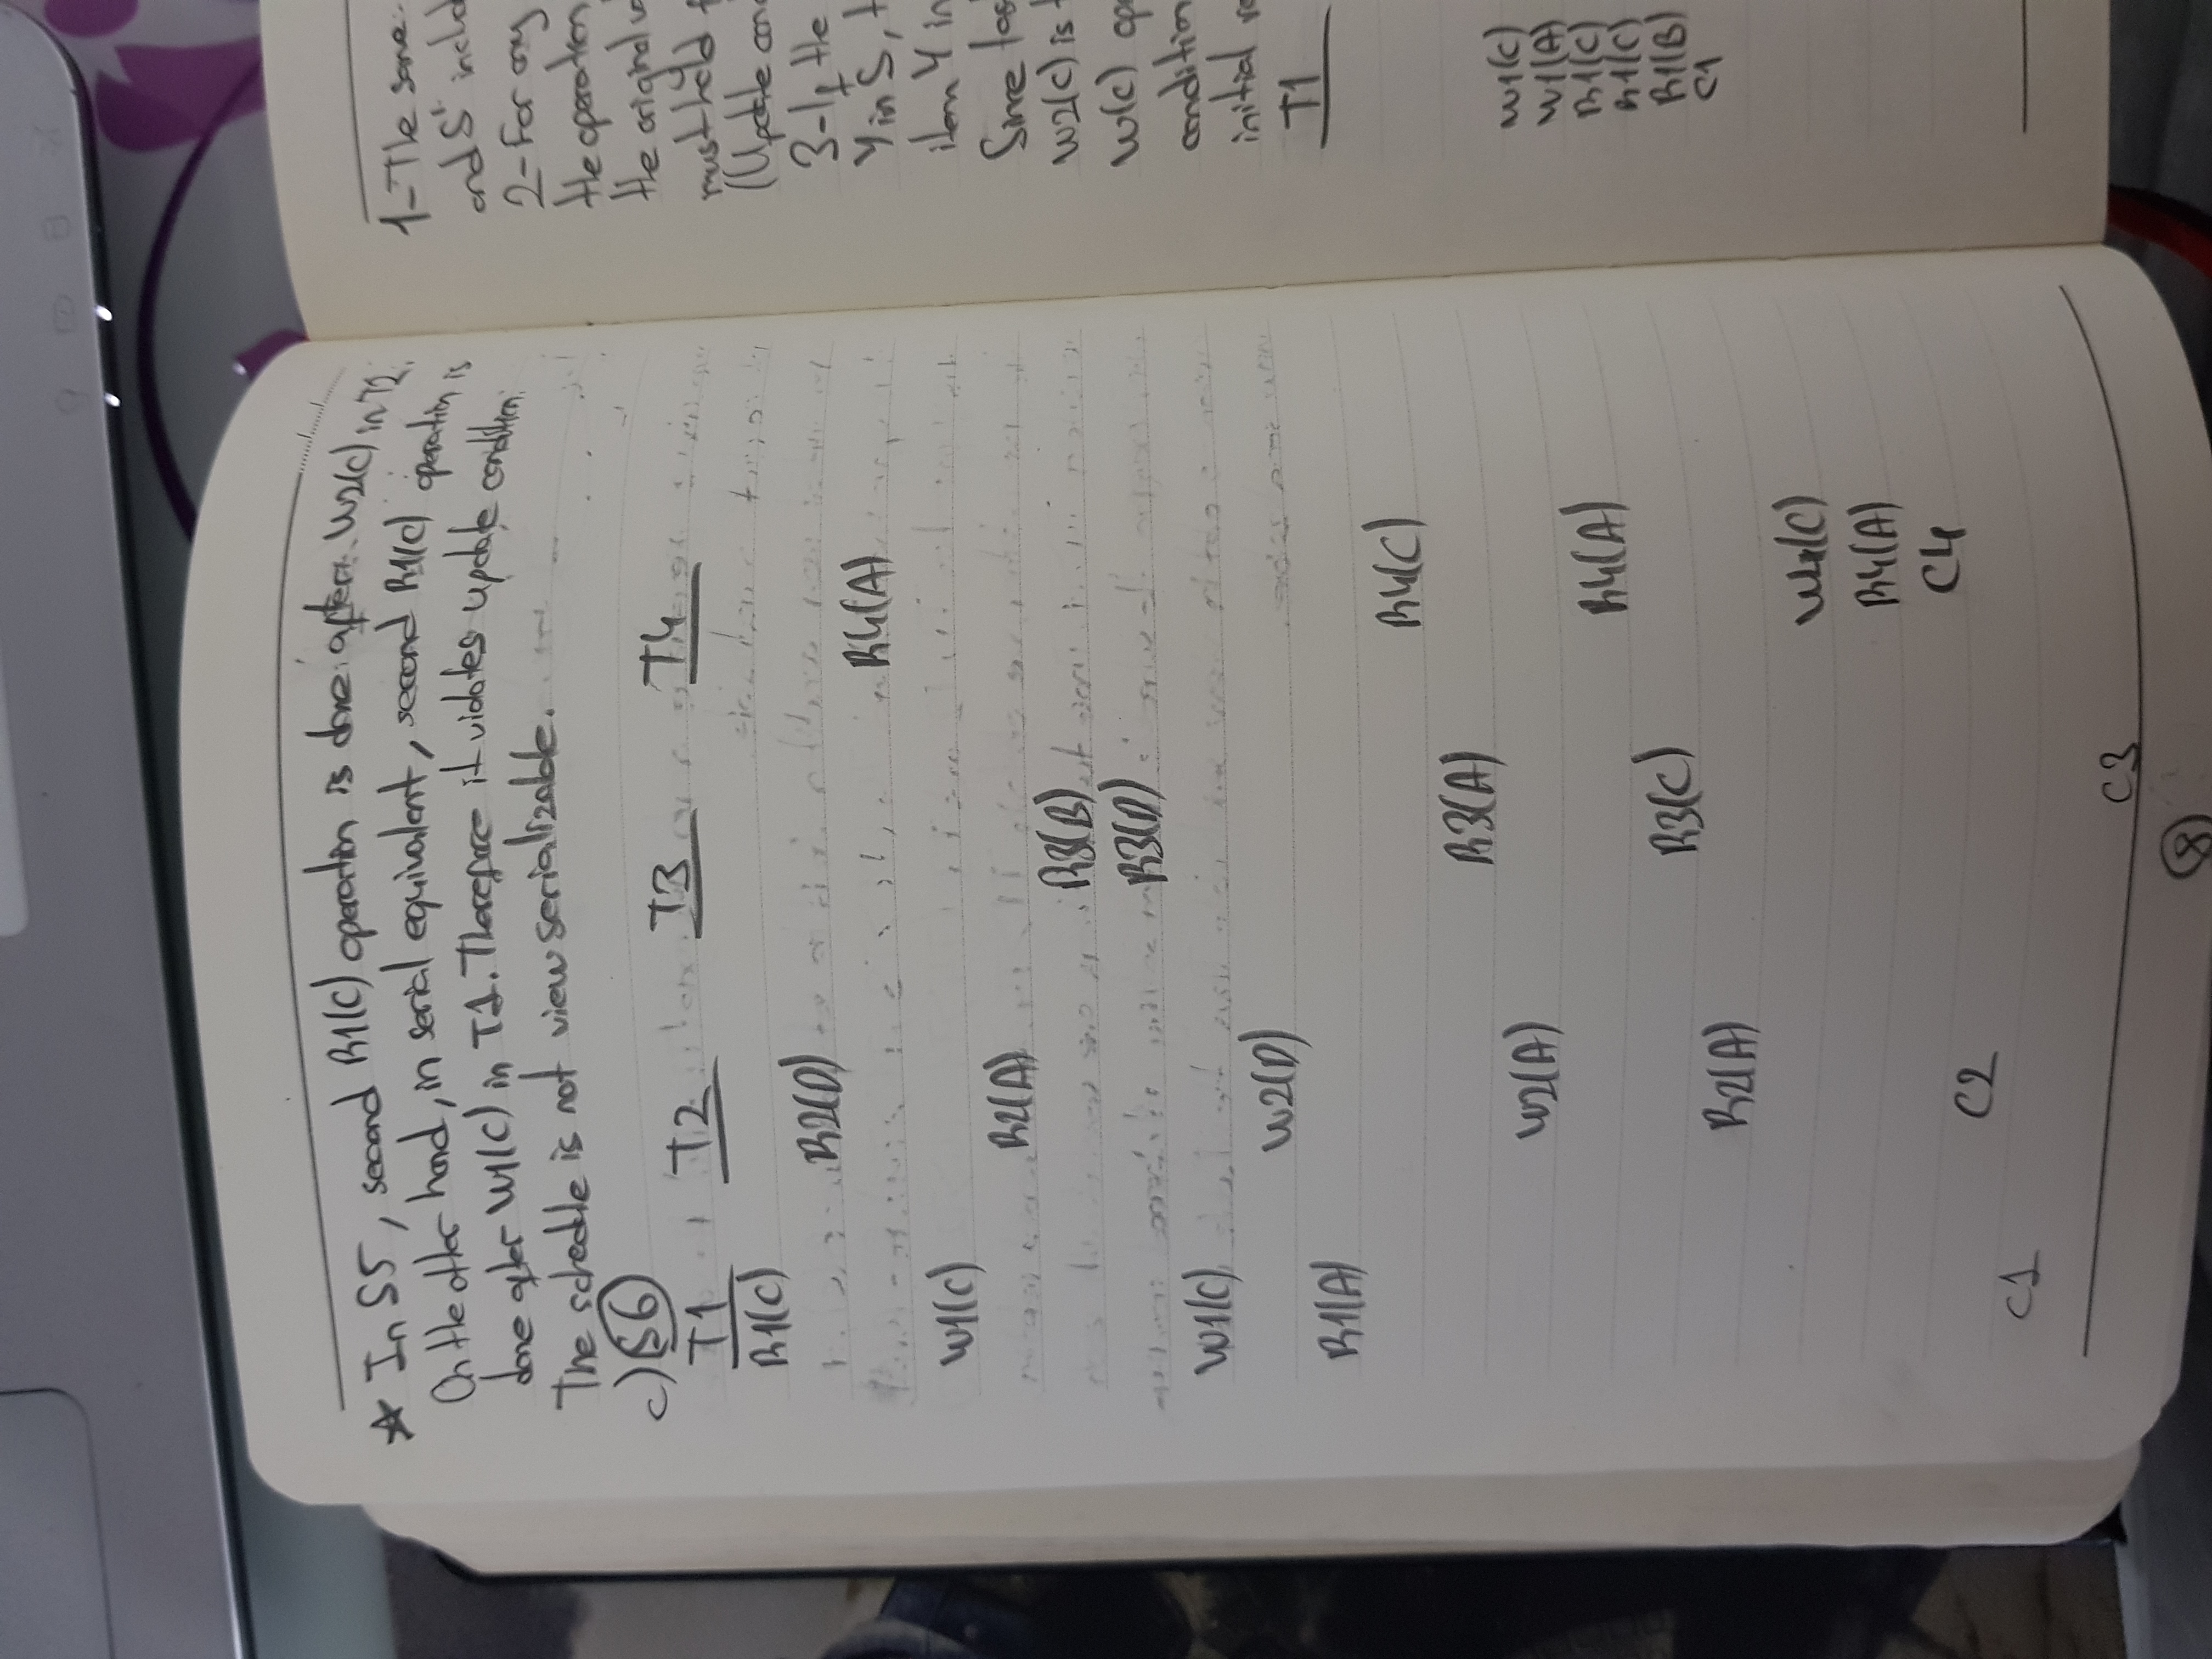 ☆ In S5, second R1(C) operation is done after W2(C) in T2.
On the other hand, in serial equivalent, second R1(C) operation is
done after W1(C) in T1. Therefore it violates update condition.
The schedule is not view serializable.
c) S6
T1 T2 T3 T4
R1(C)
R2(D)
R4(A)
W1(C)
R2(A)
R3(B)
R3(D)
W1(C)
W2(D)
R1(A)
R4(C)
R3(A)
W2(A)
R4(A)
R3(C)
R2(A)
W4(C)
R4(A)
C4
C2
C1
C3
8
1-The same
and S'
2-For any
the operation
the original
must hold
(Update
3-If the
Y in S,
item Y in
Since
W2(C) is
W(C)
condition
initial
T1
W1(C)
W1(A)
R1(C)
R1(C)
R1(B)
C1